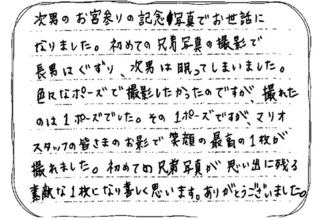 次男のお宮参りの記念写真でお世話に
なりました。初めての兄弟写真の撮影で
長男はぐずり、次男は眠ってしまいました。
色々なポーズで撮影したかったのですが、撮れた
のは1ポーズでした。その1ポーズですが、マリオ
スタッフの皆さまのお影で笑顔の最高の1枚が
撮れました。初めての兄弟写真が思い出に残る
素敵な1枚になり嬉しく思います。ありがとうございました。